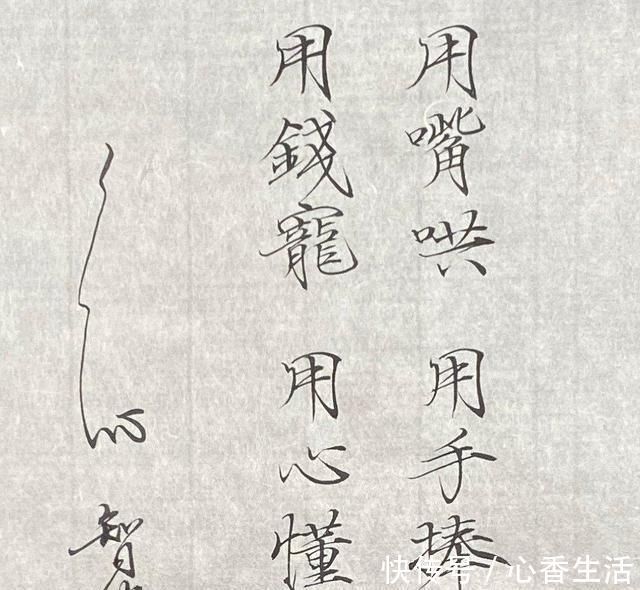 用嘴哄 用手捧
用錢寵 用心懂
智
快传号/心香生活